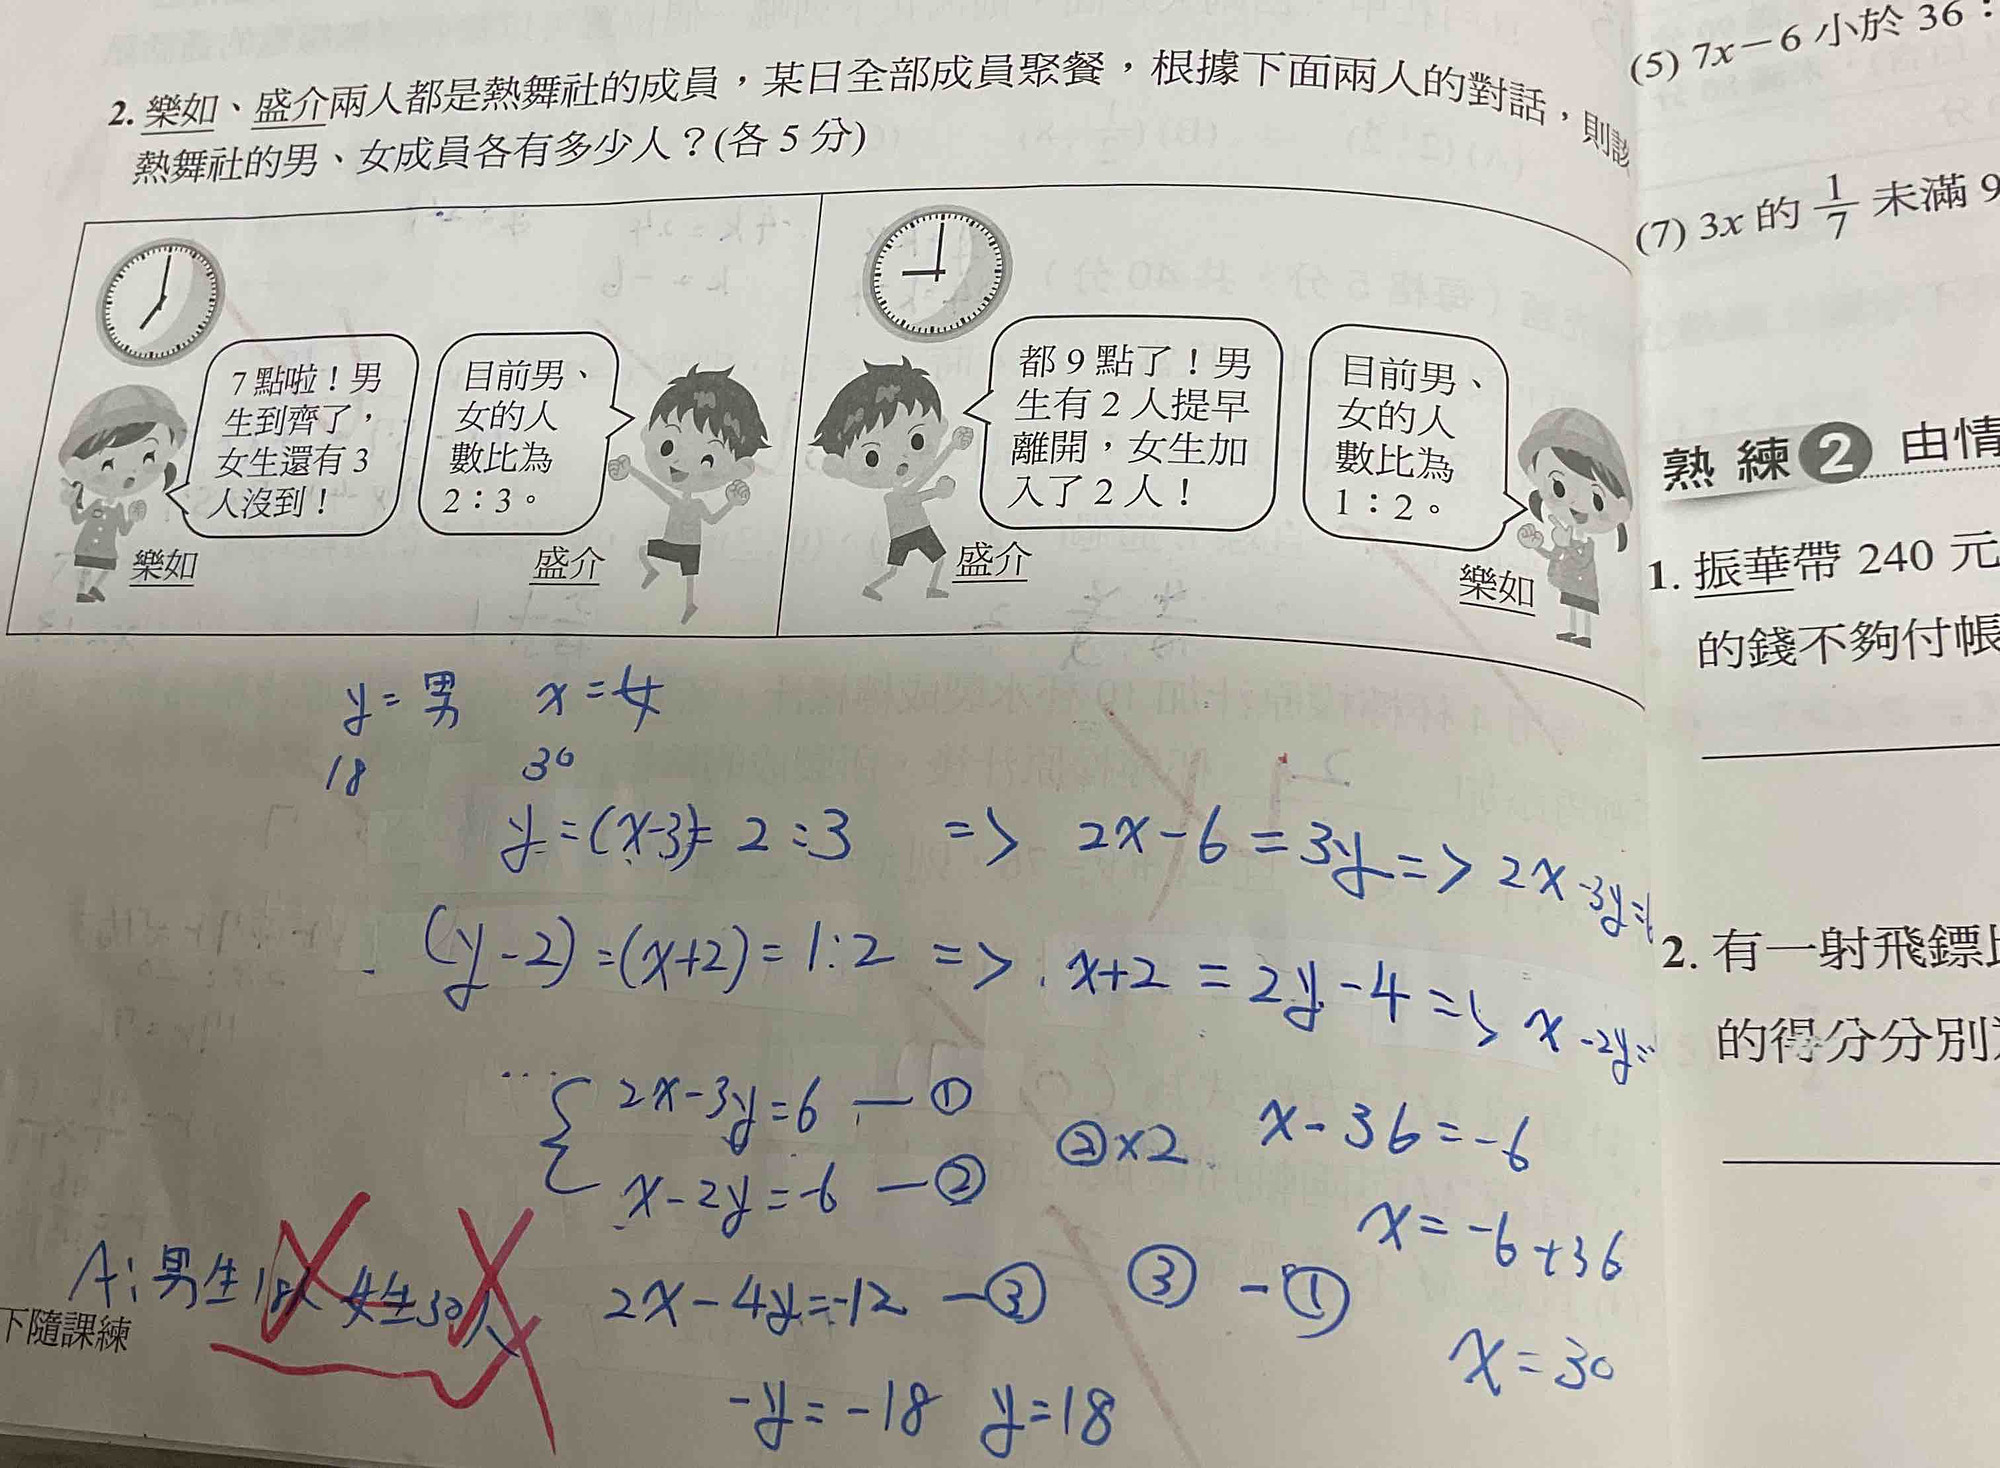 2. 樂如、盛介兩人都是熱舞社的成員，某日全部成員聚餐，根據下面兩人的對話，則該
熱舞社的男、女成員各有多少人？(各 5 分)
7 點啦！男
生到齊了，
女生還有 3
人沒到！
樂如
目前男、
女的人
數比為
2：3。
盛介
都 9 點了！男
生有 2 人提早
離開，女生加
入了 2 人！
盛介
目前男、
女的人
數比為
1：2。
樂如
y=男 x=女
18 30
y=(x-3)=2:3 => 2x-6=3y => 2x-3y=
(y-2)=(x+2)=1:2 => x+2=2y-4 => x-2y=
2x-3y=6 —①
x-2y=-6 —②
②×2
2x-4y=-12 —③
③-①
-y=-18 y=18
x-36=-6
x=-6+36
x=30
A:男生18人 女生30人
下隨課練
(5) 7x－6 小於 36：
(7) 3x 的 1/7 未滿 9
熟練 2 由情
1. 振華帶 240 元
的錢不夠付帳
2. 有一射飛鏢比
的得分分別